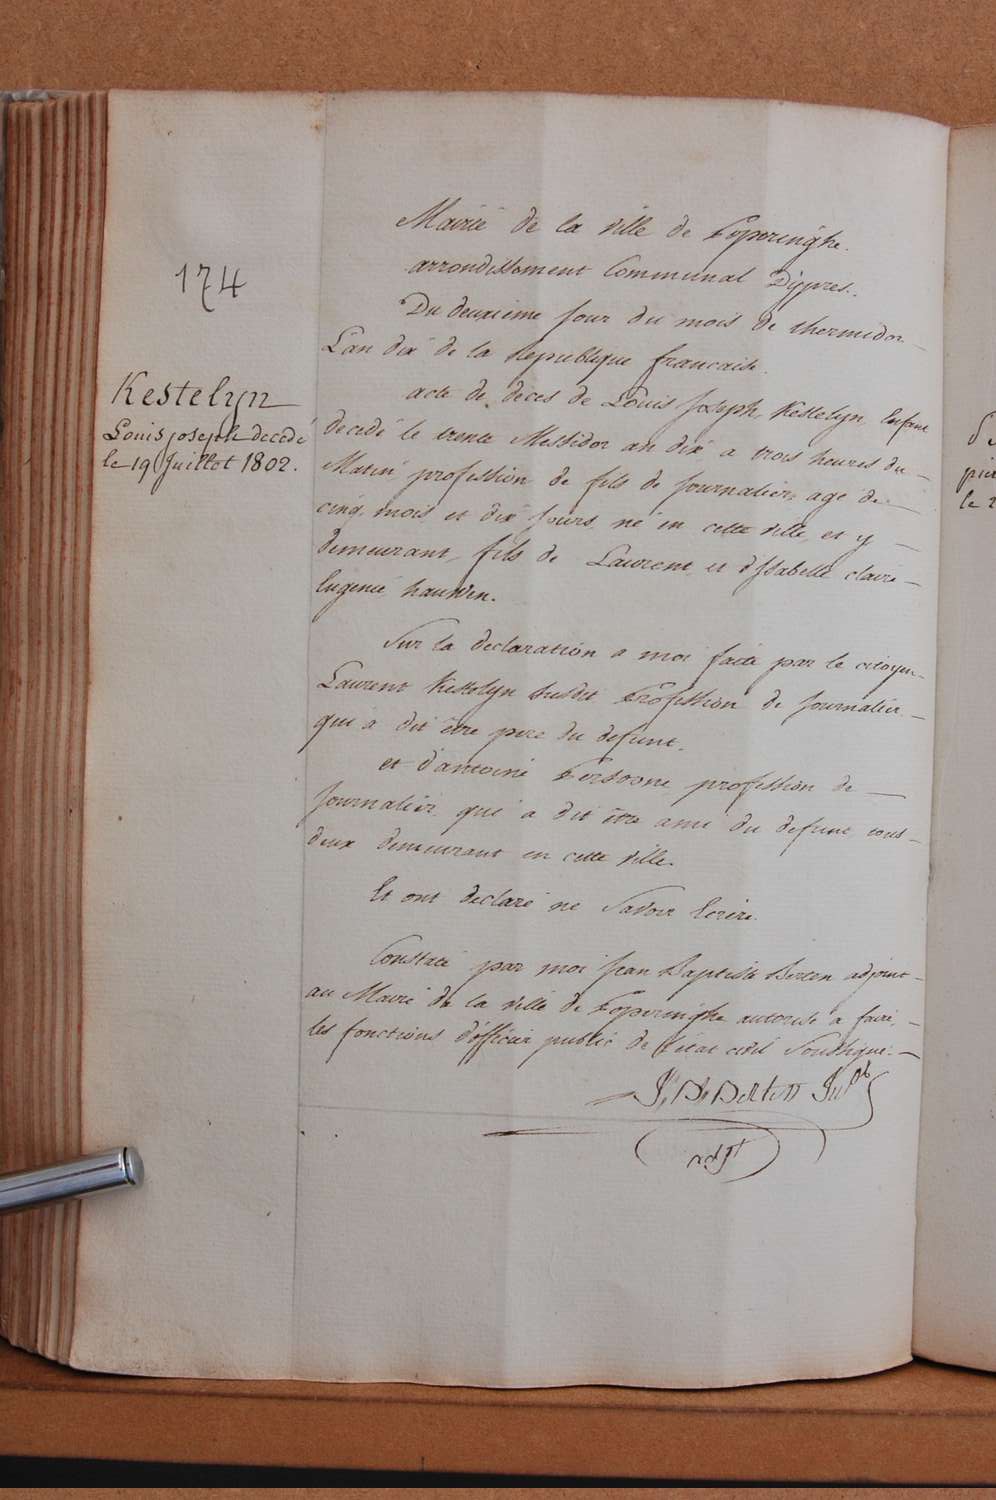 174
Kestelyn
Louis joseph decédé
le 19 Juillet 1802.
Mairie de la ville de Poperinghe.
arrondissement Communal D'ypres.
Du deuxieme jour du mois de thermidor
L'an dix de la Republique francaise.
acte de déces de Louis Joseph Kestelyn Enfant
decedé le trente Messidor an dix a trois heures du
Matin profession de fils de journalier, agé de
cinq mois et dix jours, né en cette ville, et y
demeurant, fils de Laurent et d'Isabelle claire
Eugenie hauwen.
Sur la declaration a moi faite par le citoyen
Laurent Kestelyn susdit Profession de journalier
qui a dit être pere du defunt.
et d'antoine Persoone profession de
journalier qui a dit être ami du defunt tous
deux demeurant en cette ville.
Et ont declaré ne savoir Ecrire.
Constaté par moi Jean Baptiste Berten adjoint
au Maire de la ville de Poperinghe autorisé a faire
les fonctions d'officier public de l'état civil soussigné.
J. B. Berten
adjt
De
le 2